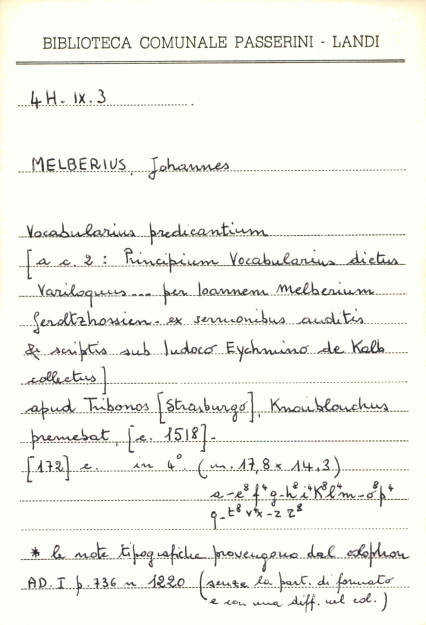 BIBLIOTECA COMUNALE PASSERINI - LANDI
4H. IX. 3
MELBERIUS, Johannes
Vocabularius predicantium
[a c. 2 : Principium Vocabularius dictus
Variloquus... per Ioannem Melberium
Geroltzhossien. ex sermonibus auditis
& scriptis sub Iudoco Eychmino de Kalb
collectus]
apud Tribonos [Strasburgo], Knoublouchus
premebat, [c. 1518].
[172] c. in 4° (m. 17,8 x 14,3)
a-e⁸ f⁴ g-h⁸ i⁴ K⁸ l⁴ m-o⁸ p⁴
q-t⁸ v⁴ x-z
* le note tipografiche provengono dal colophon
AD. I p. 736 n 1220 (senza la part. di formato
e con una diff. nel col.)